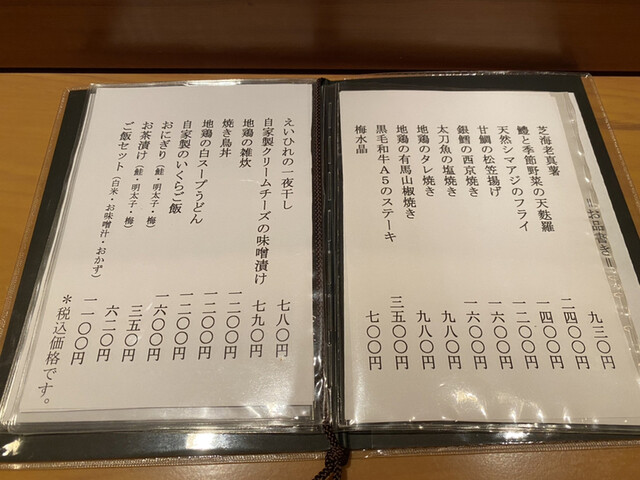 =お品書き=
芝海老真薯 九三〇円
鱧と季節野菜の天麩羅 二四〇〇円
天然シマアジのフライ 一四〇〇円
甘鯛の松笠揚げ 一二〇〇円
銀鱈の西京焼き 一六〇〇円
太刀魚の塩焼き 一六〇〇円
地鶏のタレ焼き 九八〇円
地鶏の有馬山椒焼き 九八〇円
黒毛和牛A5のステーキ 三五〇〇円
梅水晶 七〇〇円
えいひれの一夜干し 七八〇円
自家製クリームチーズの味噌漬け 七九〇円
地鶏の雑炊 一二〇〇円
焼き鳥丼 一二〇〇円
地鶏の白スープうどん 一二〇〇円
自家製のいくらご飯 一六〇〇円
おにぎり（鮭・明太子・梅） 三五〇円
お茶漬け（鮭・明太子・梅） 六二〇円
ご飯セット（白米・お味噌汁・おかず） 一一〇〇円
＊税込価格です。